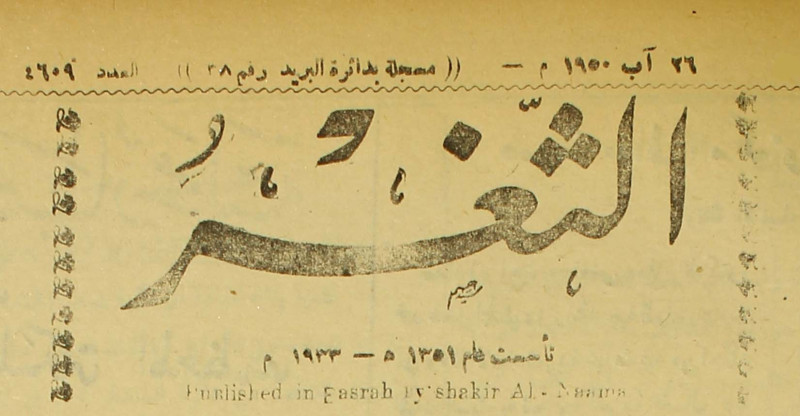 ٢٦ آب ١٩٥٠ م — (( مسجلة بدائرة البريد رقم ٣٨ )) العدد ٤٦٠٩
الثَّغْرُ
تأسست عام ١٣٥١ ه — ١٩٣٣ م
Published in Basrah by shakir Al - Naama